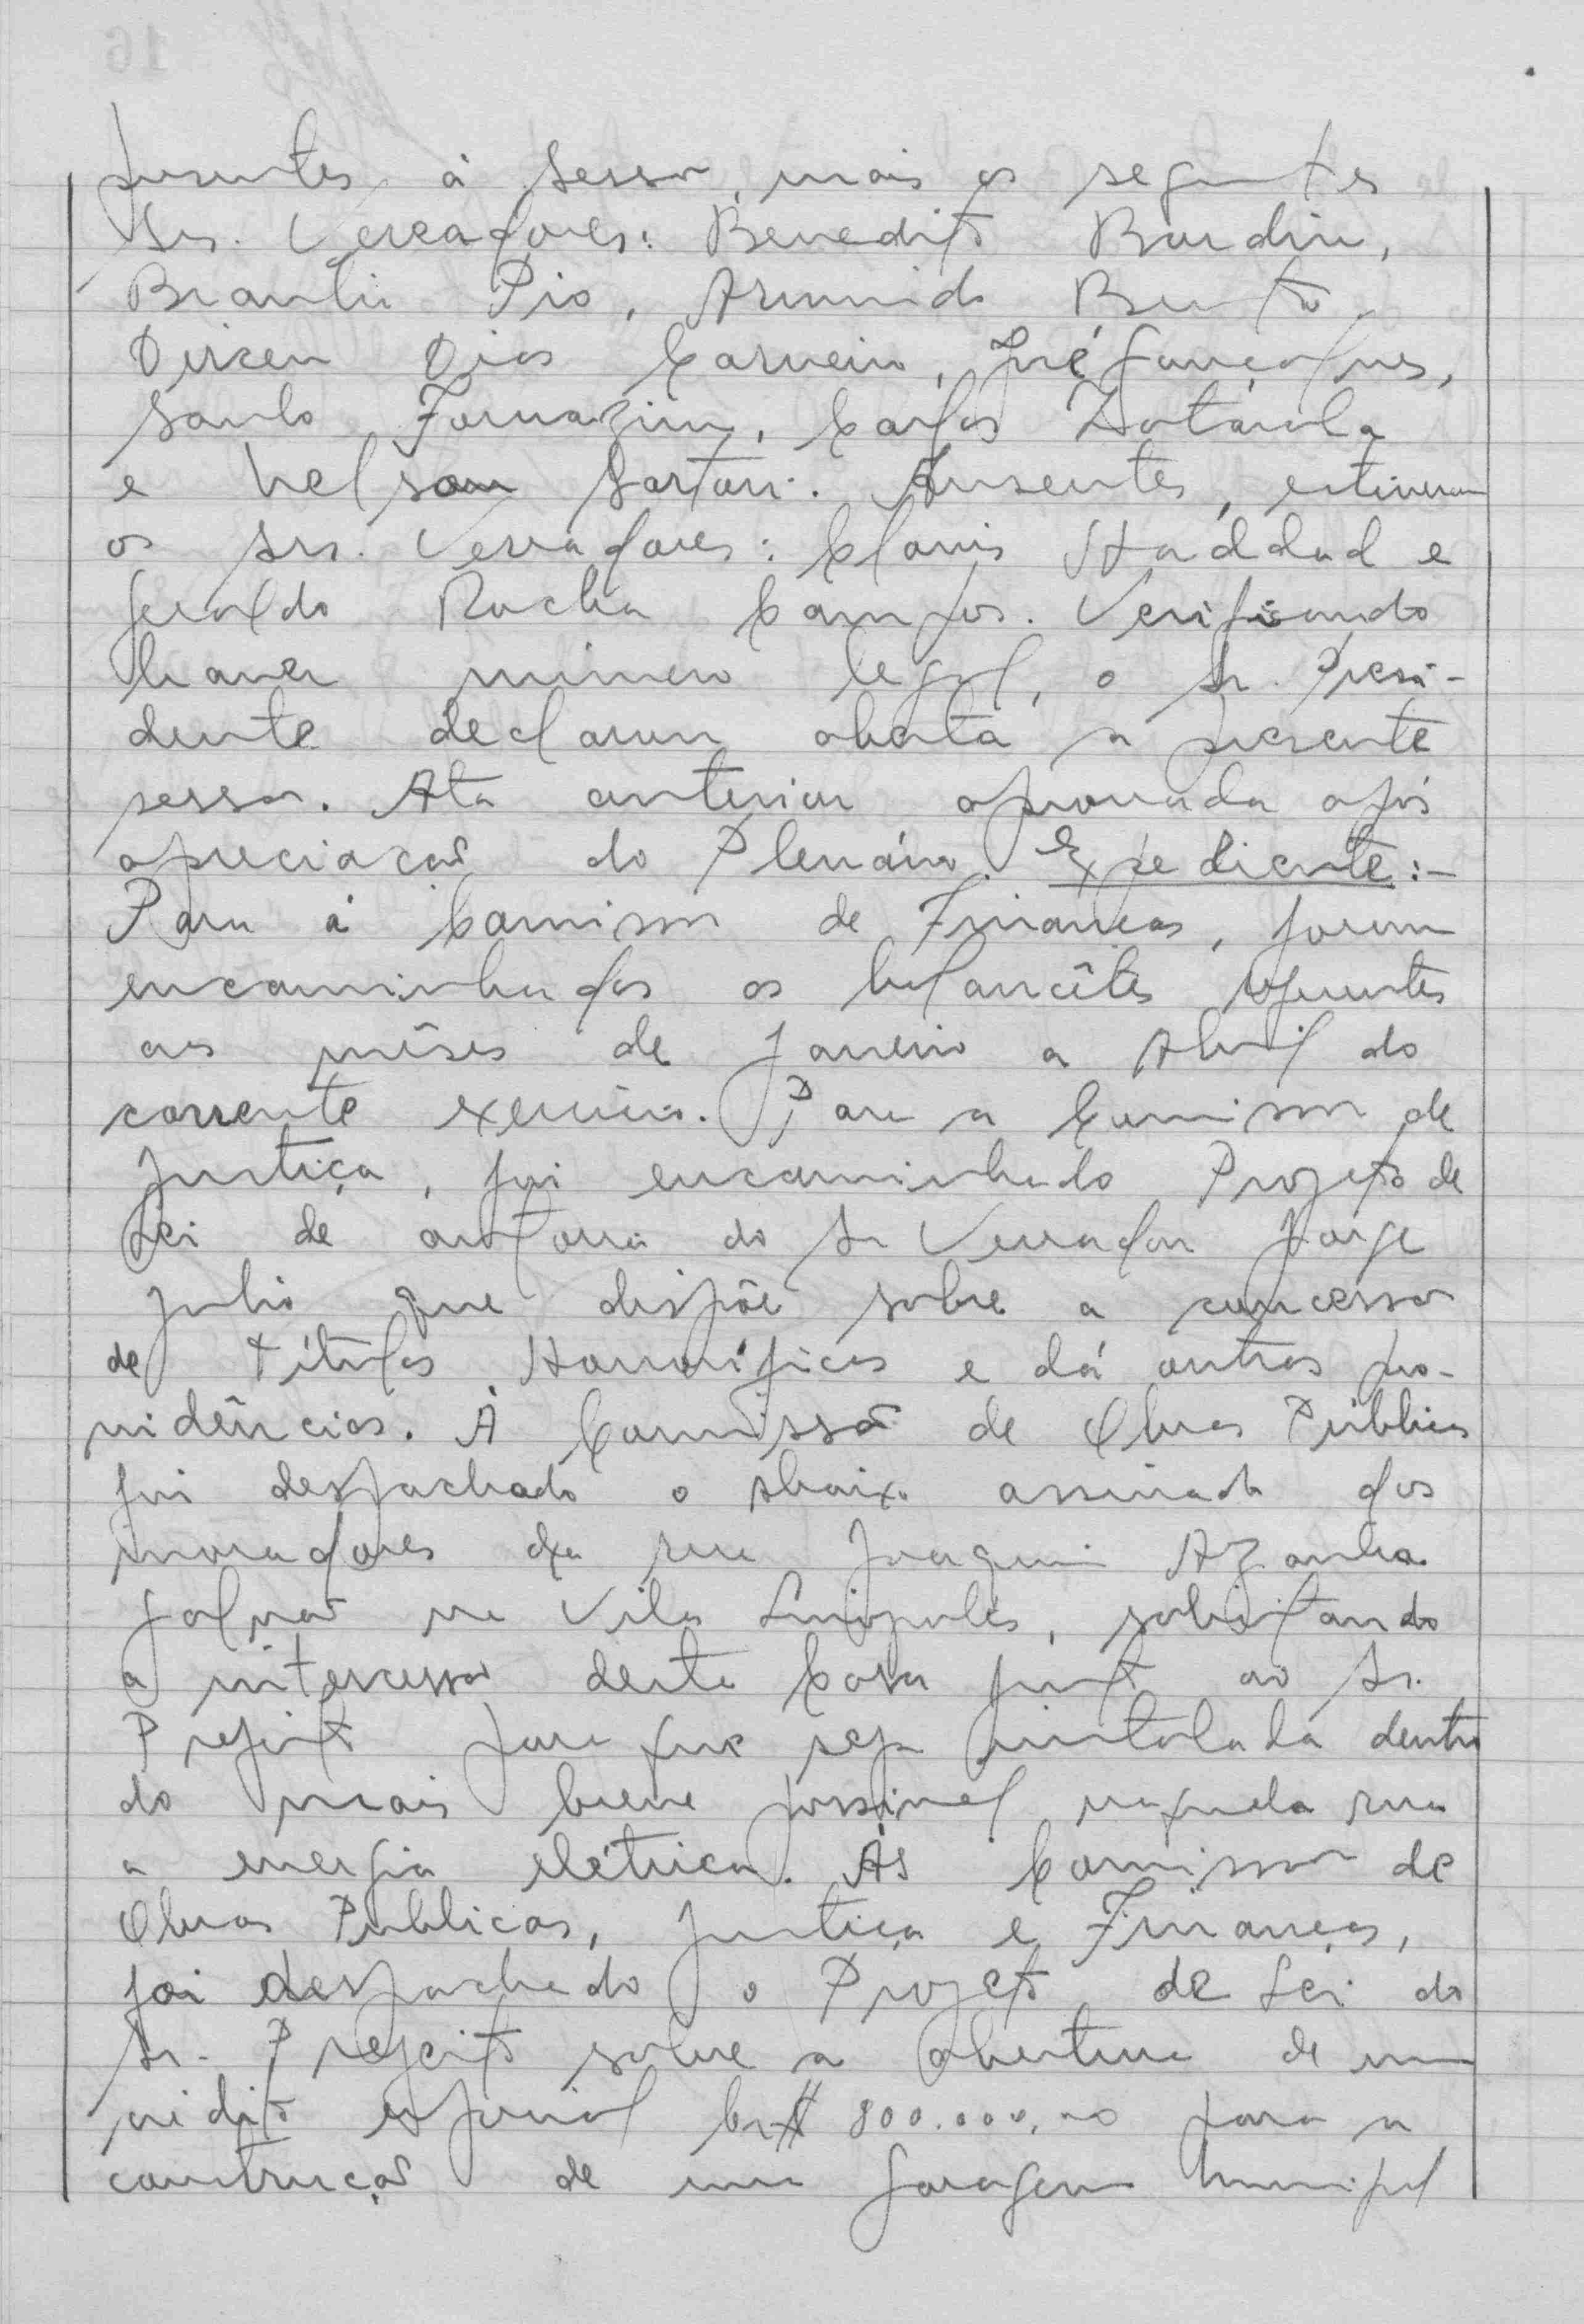 presentes à sessão, mais os seguintes
Srs. Vereadores: Benedito Bordin,
Brantis Pio, Armindo Bento,
Dirceu Dias Carneiro, José Gonçalves,
Santo Fornazim, Carlos Zotárola
e Nelson Sartori. Ausentes, estiveram
os Srs. Vereadores: Clovis Haddad e
Geraldo Rocha Campos. Verificando
haver número legal, o Sr. Presi-
dente declarou aberta a presente
sessão. Ata anterior aprovada após
apreciação do Plenário. Expediente:-
Para á Comissão de Finanças, foram
encaminhados os balancêtes referentes
aos mêses de Janeiro a Abril do
corrente exercício. Para a Comissão de
Justiça, foi encaminhado Projeto de
Lei de autoria do Sr Vereador Jorge
Julio que dispõe sobre a concessão
de títulos Honoríficos e dá outras pro-
vidências. À Comissão de Obras Públicas
foi despachado o abaixo assinado dos
moradores da rua Joaquim Azanha
Galvão na Vila Linópolis, solicitando
a intercessão desta Casa junto ao Sr.
Prefeito para que seja instalada dentro
do mais breve possivel naquela rua
a energia elétrica. Às Comissão de
Obras Publicas, Justiça e Finanças,
foi despachado o Projeto de Lei do
Sr. Prefeito sobre a abertura de um
crédito especial Cr$ 800.000,00 para a
construção de uma garagem Municipal